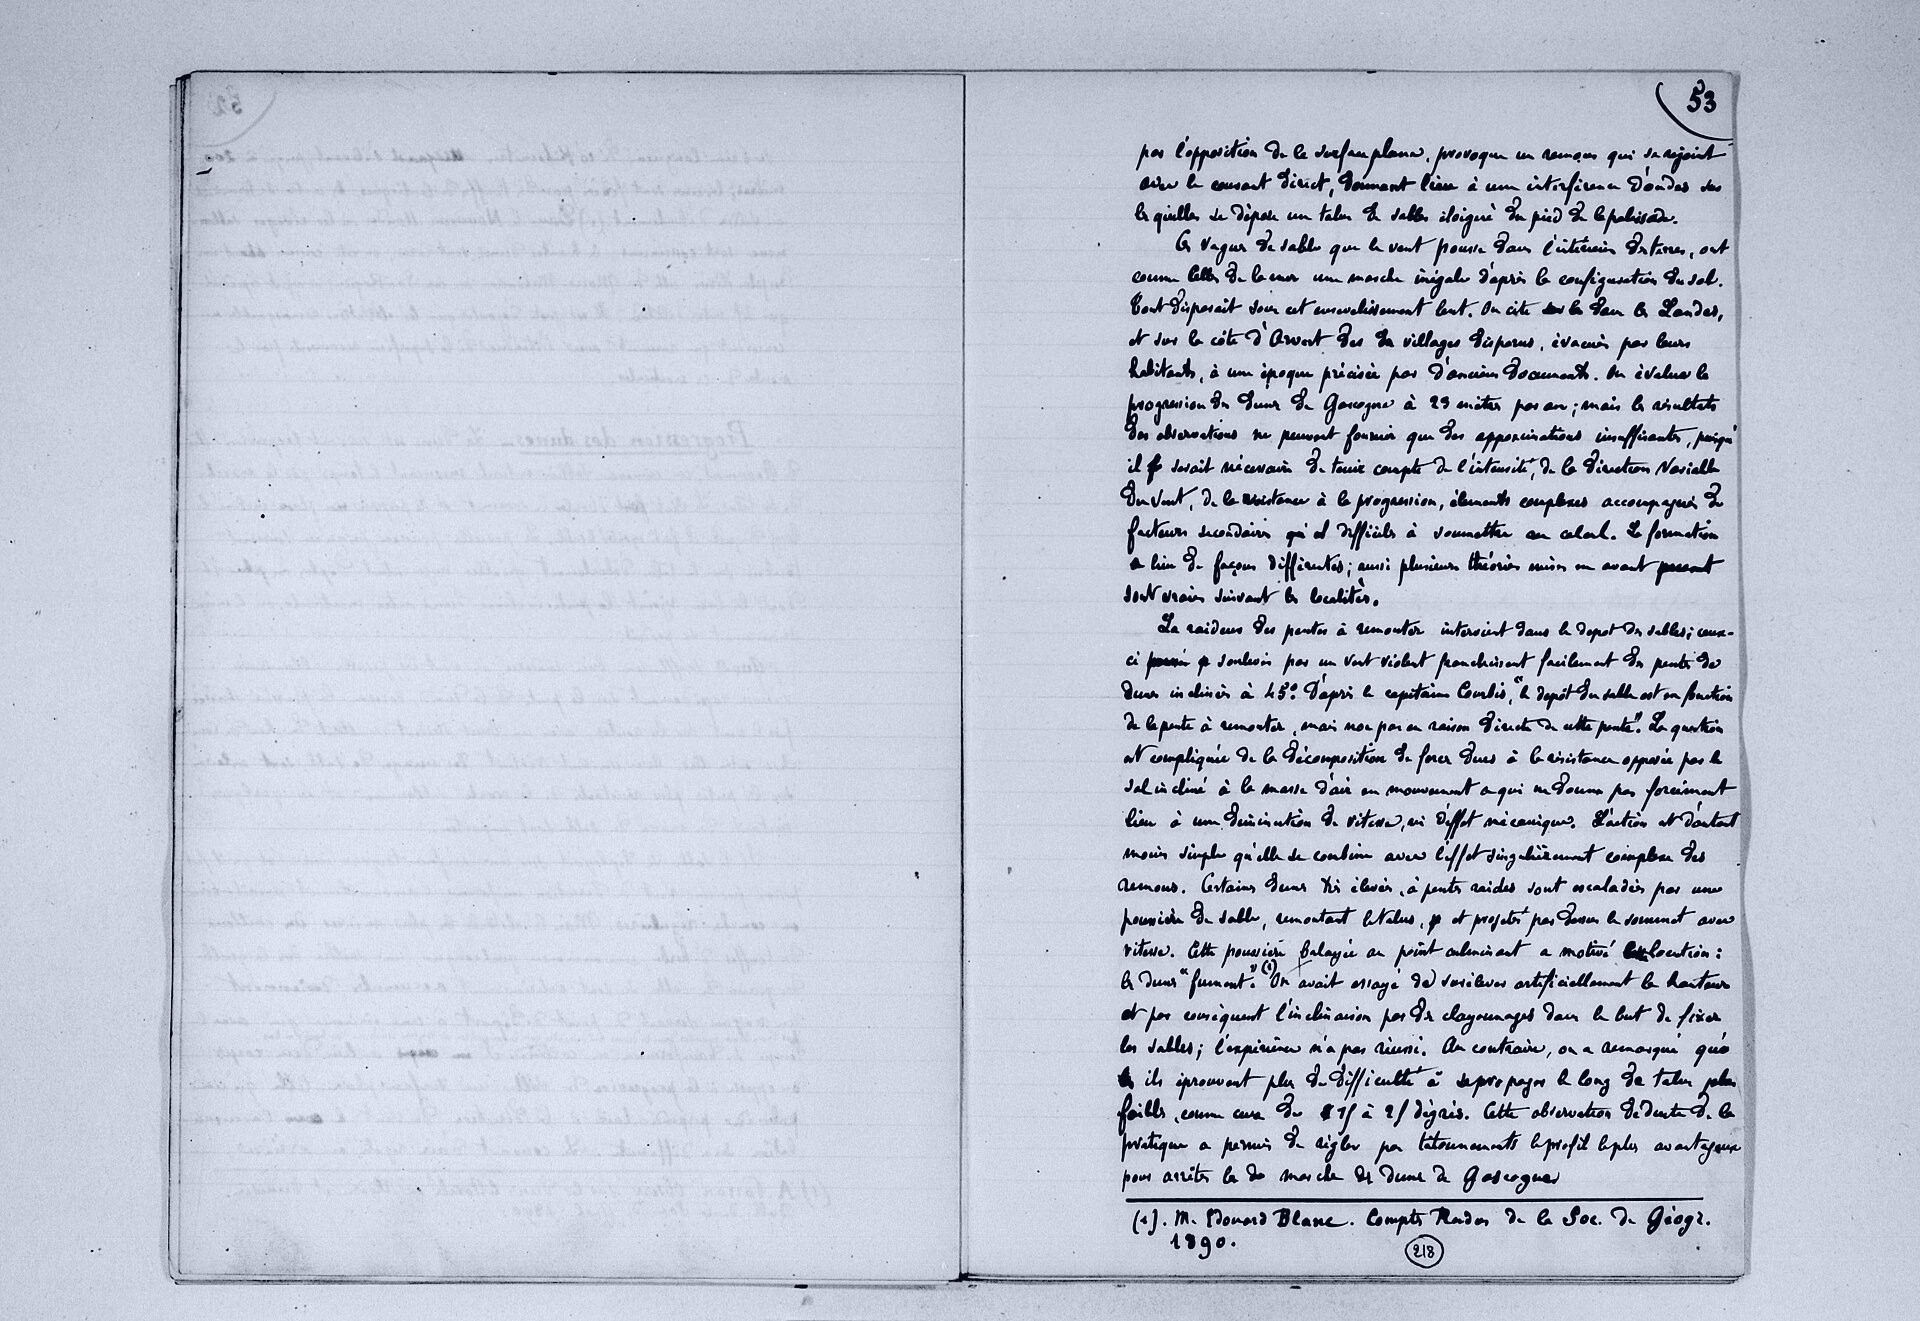 53
par l'opposition de la surface plane, provoque un remous qui se rejoint
avec le courant direct, donnant lieu à une interférence d'ondes sous
lesquelles se dépose un talus de sables éloigné du pied de la palissade.
Ces vagues de sable que le vent pousse dans l'intérieur des terres, ont
comme celles de la mer une marche inégale d'après la configuration du sol.
Tout disparait sous cet ensevelissement lent. On cite dans les Landes,
et sur la côte d'Arvert des villages disparus, évacués par leurs
habitants, à une époque précisée par d'anciens documents. On évalue la
progression des dunes de Gascogne à 23 mètres par an ; mais les résultats
des observations ne peuvent fournir que des approximations insuffisantes, puisqu'
il serait nécessaire de tenir compte de l'intensité, de la direction variable
du vent, de la résistance à la progression, éléments complexes accompagnés de
facteurs secondaires qu'il est difficile à soumettre au calcul. La formation
a lieu de façons différentes ; aussi plusieurs théories mises en avant
sont vraies suivant les localités.
La raideur des pentes à remonter intervient dans le depot des sables ; ceux-
ci soulevés par un vent violent franchissent facilement des pentes de
dunes inclinées à 45°. D'après le capitaine Courbis, "le depôt du sable est en fonction
de la pente à remonter, mais non pas en raison directe de cette pente". La question
est compliquée de la décomposition de forces dues à la résistance opposée par le
sol incliné à la masse d'air en mouvement qui ne donne pas forcément
lieu à une diminution de vitesse, ni d'effet mécanique. L'action est d'autant
moins simple qu'elle se combine avec l'effet singulièrement complexe des
remous. Certaines dunes très élevées, à pentes raides sont escaladées par une
poussière de sable, remontant le talus, et projetée par dessus le sommet avec
vitesse. Cette poussière balayée au point culminant a motivé locution :
les dunes "fument." (1) On avait essayé de surélever artificiellement la hauteur
et par conséquent l'inclinaison par des clayonnages dans le but de fixer
les sables ; l'expérience n'a pas réussi. Au contraire, on a remarqué qu'
ils éprouvent plus de difficulté à se propager le long de talus plus
faibles, comme ceux de 15 à 25 dégrés. Cette observation déduite de la
pratique a permis de régler par tatonnements le profil le plus avantageux
pour arrêter la marche des dunes de Gascogne
(1). M. Edouard Blanc. Comptes Rendus de la Soc. de Géogr.
1890.
218